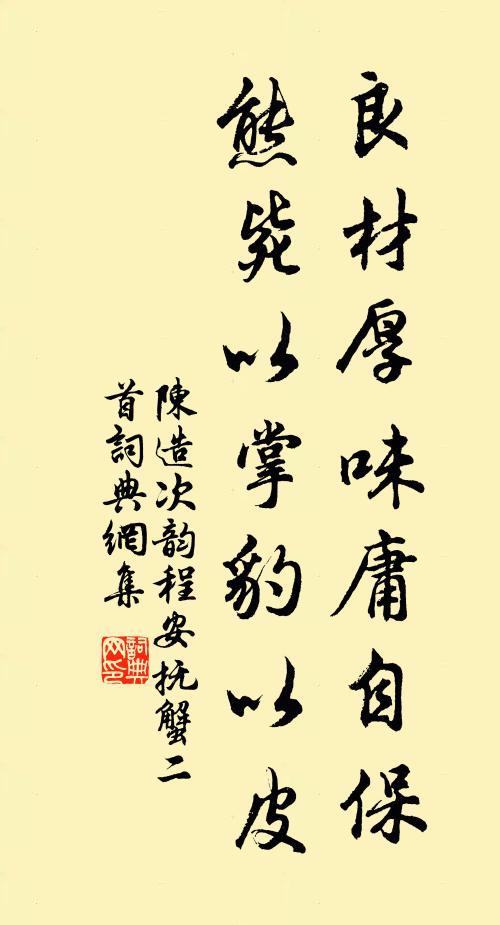 良材厚味庸自保
熊毙以掌豹以皮
陳造次韵程安抚蟹二
首詞典網集
詞典
网印